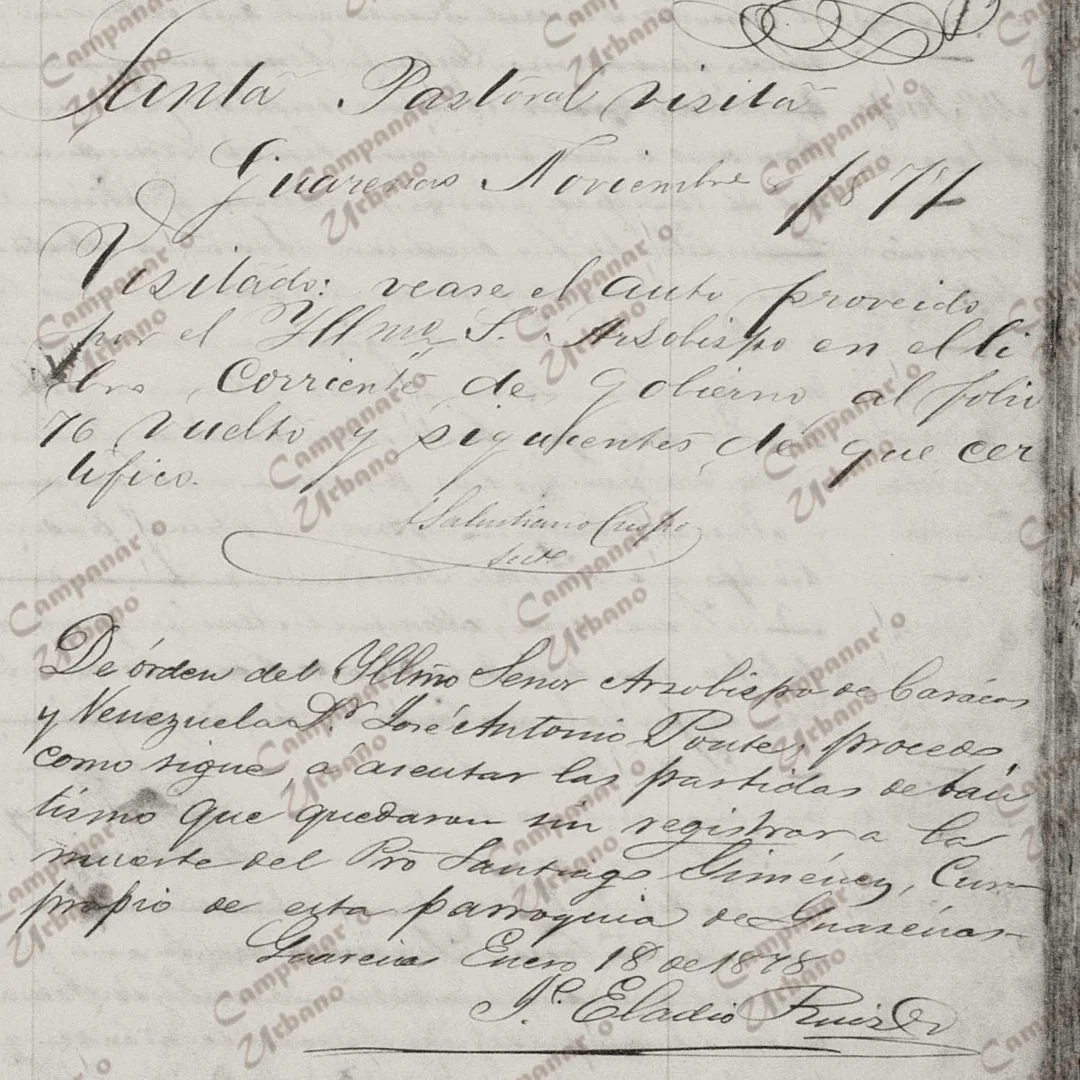 Santa Pastoral visita
Guarenas Noviembre 1877
Visitado: vease el auto proveido
por el Yllmo S. Arzobispo en el li
bro corriente de gobierno al folio
76 vuelto y siguientes de que cer
tifico.
Salustiano Crespo
Secr.
De órden del Yllmo Señor Arzobispo de Carácas
y Venezuela Dr. José Antonio Ponte, procedo
como sigue, á asentar las partidas de báu
tismo que quedaron sin registrar a la
muerte del Pro Santiago Giménez, Cura
propio de esta parroquia de Guarénas-
Guarenas Enero 18 de 1878
Je. Eladio Ruiz
Campanario Urbano